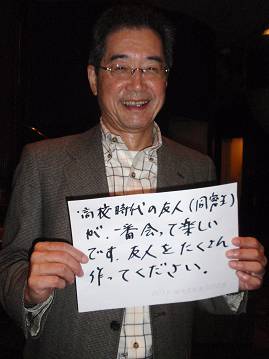 高校時代の友人(同窓生)
が、一番会って楽しい
です。友人をたくさん
作ってください。